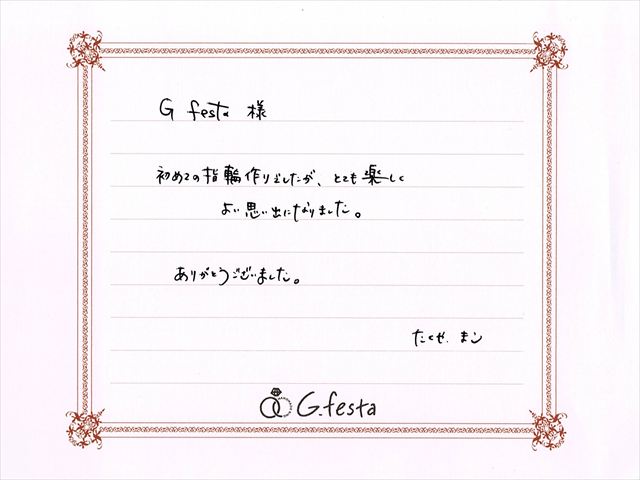 G festa 様
初めての指輪作りでしたが、とても楽しく
よい思い出になりました。
ありがとうございました。
たくや. まこ
G.festa